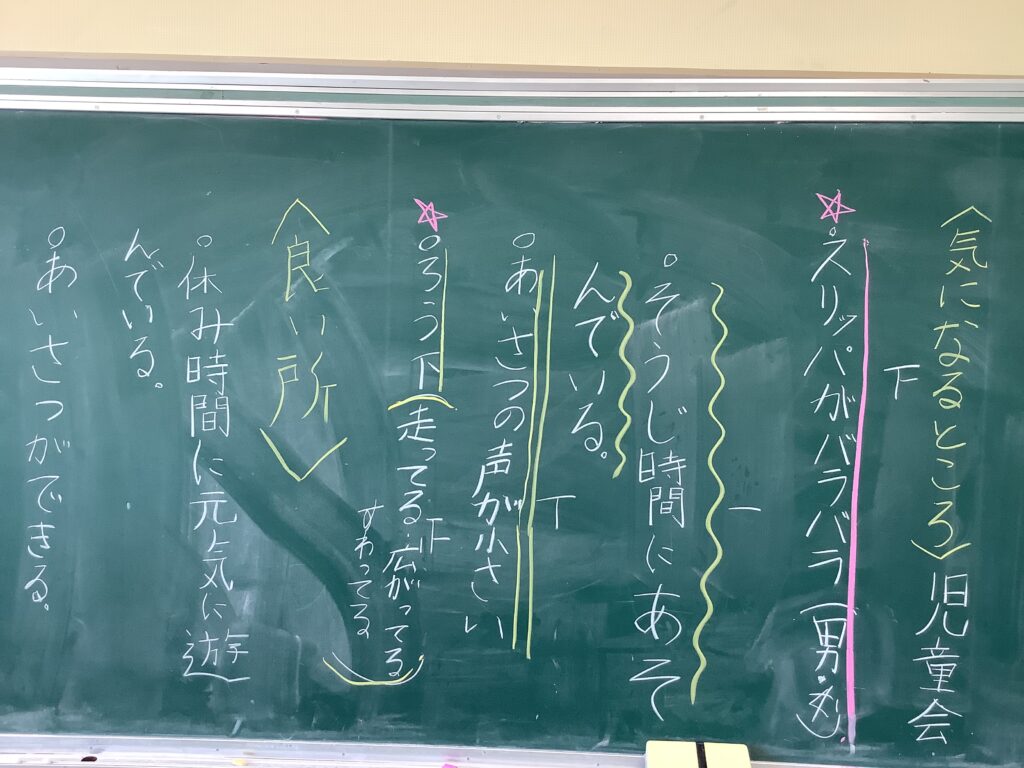 〈気になるところ〉児童会
下
スリッパがバラバラ(男・女)
一
○そうじ時間にあそ
んでいる。
丅
○あいさつの声が小さい
○ろう下(走ってる・広がってる
すわってる)
〈良い所〉
○休み時間に元気に遊
んでいる。
○あいさつができる。